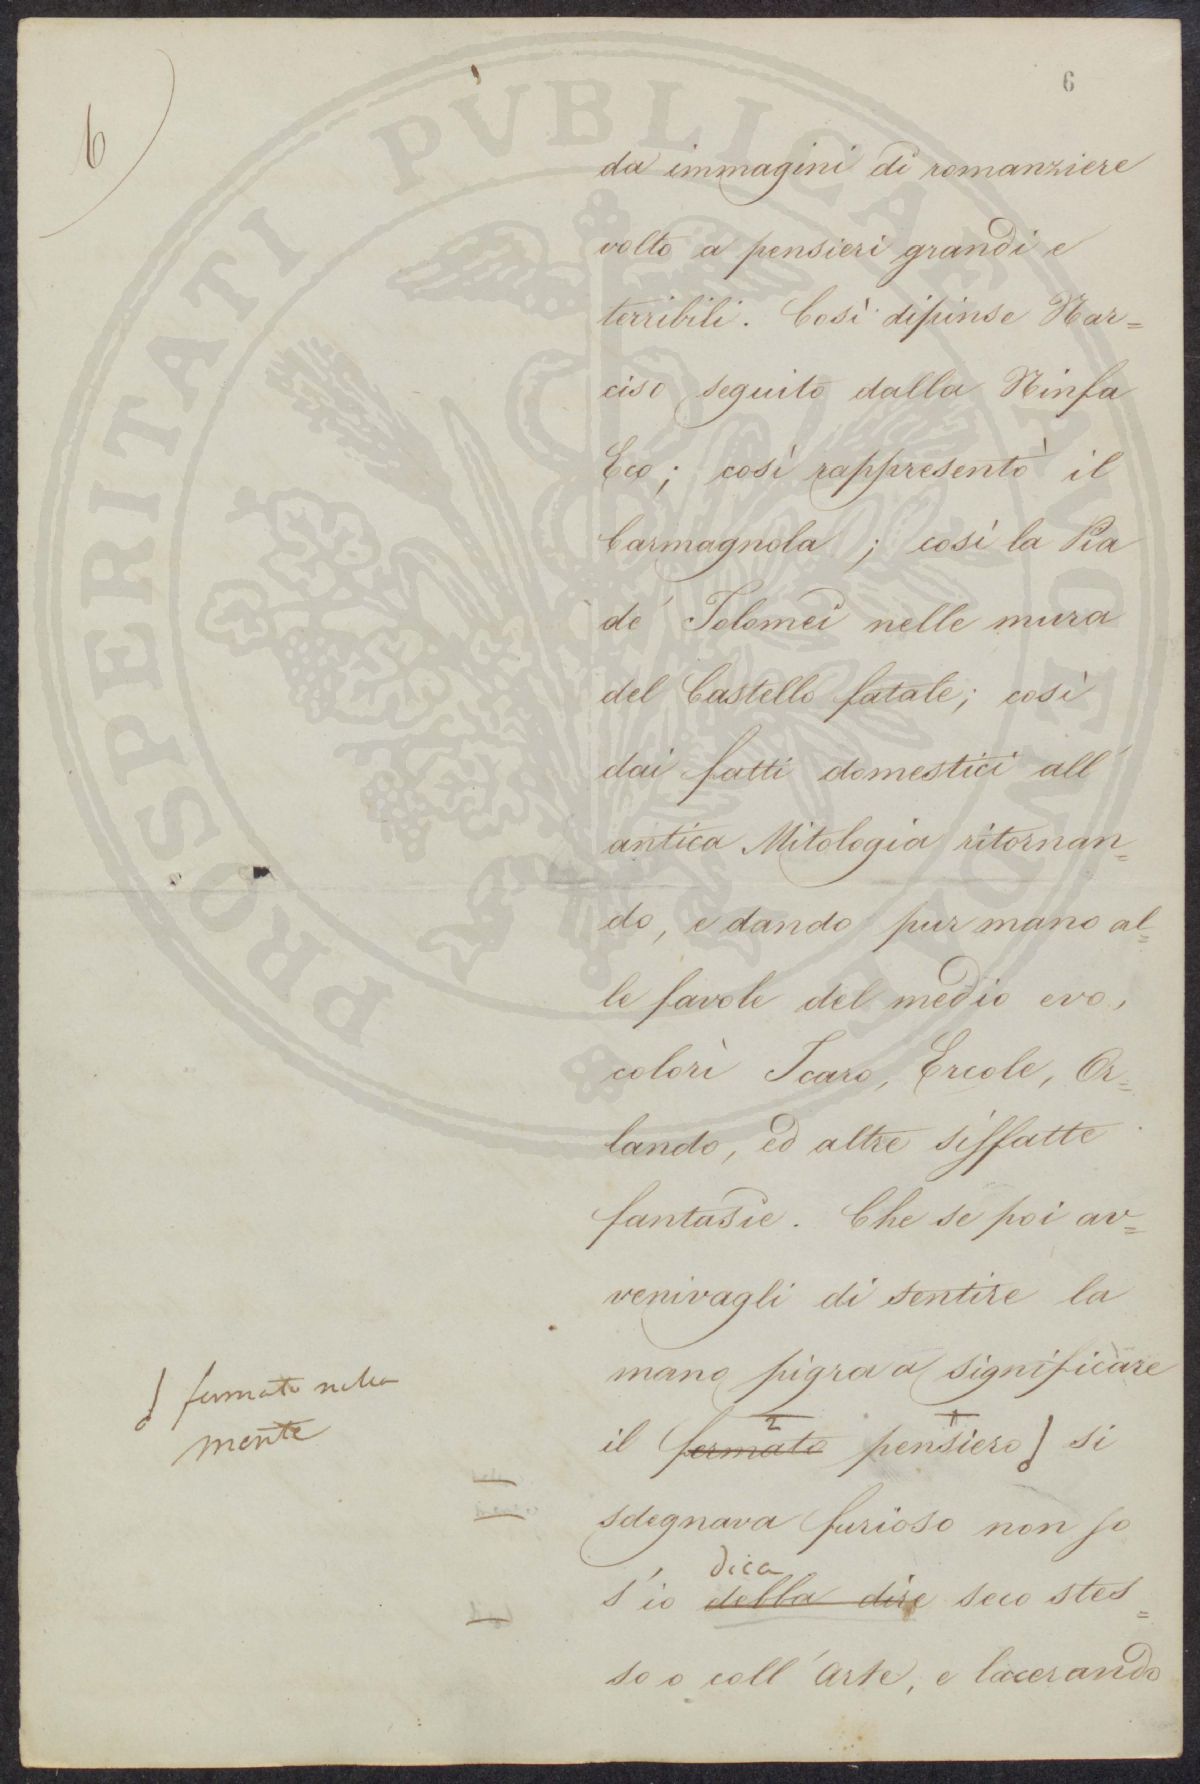 6
6)
da immagini di romanziere
volto a pensieri grandi e
terribili. Così dipinse Nar=
ciso seguito dalla Ninfa
Eco; così rappresentò il
Carmagnola; così la Pia
de' Tolomei nelle mura
del Castello fatale; così
dai fatti domestici all'
antica Mitologia ritornan=
do, e dando pur mano al=
le favole del medio evo,
colorì Icaro, Ercole, Or=
lando, ed altre siffatte
fantasie. Che se poi av=
venivagli di sentire la
mano pigra a significare
fermato nella
mente
2 1
il fermato pensiero si
sdegnava furioso non so
dica
s'io debba dire seco stes=
so o coll'Arte, e lacerando
PROSPERITATI PVBLICAE